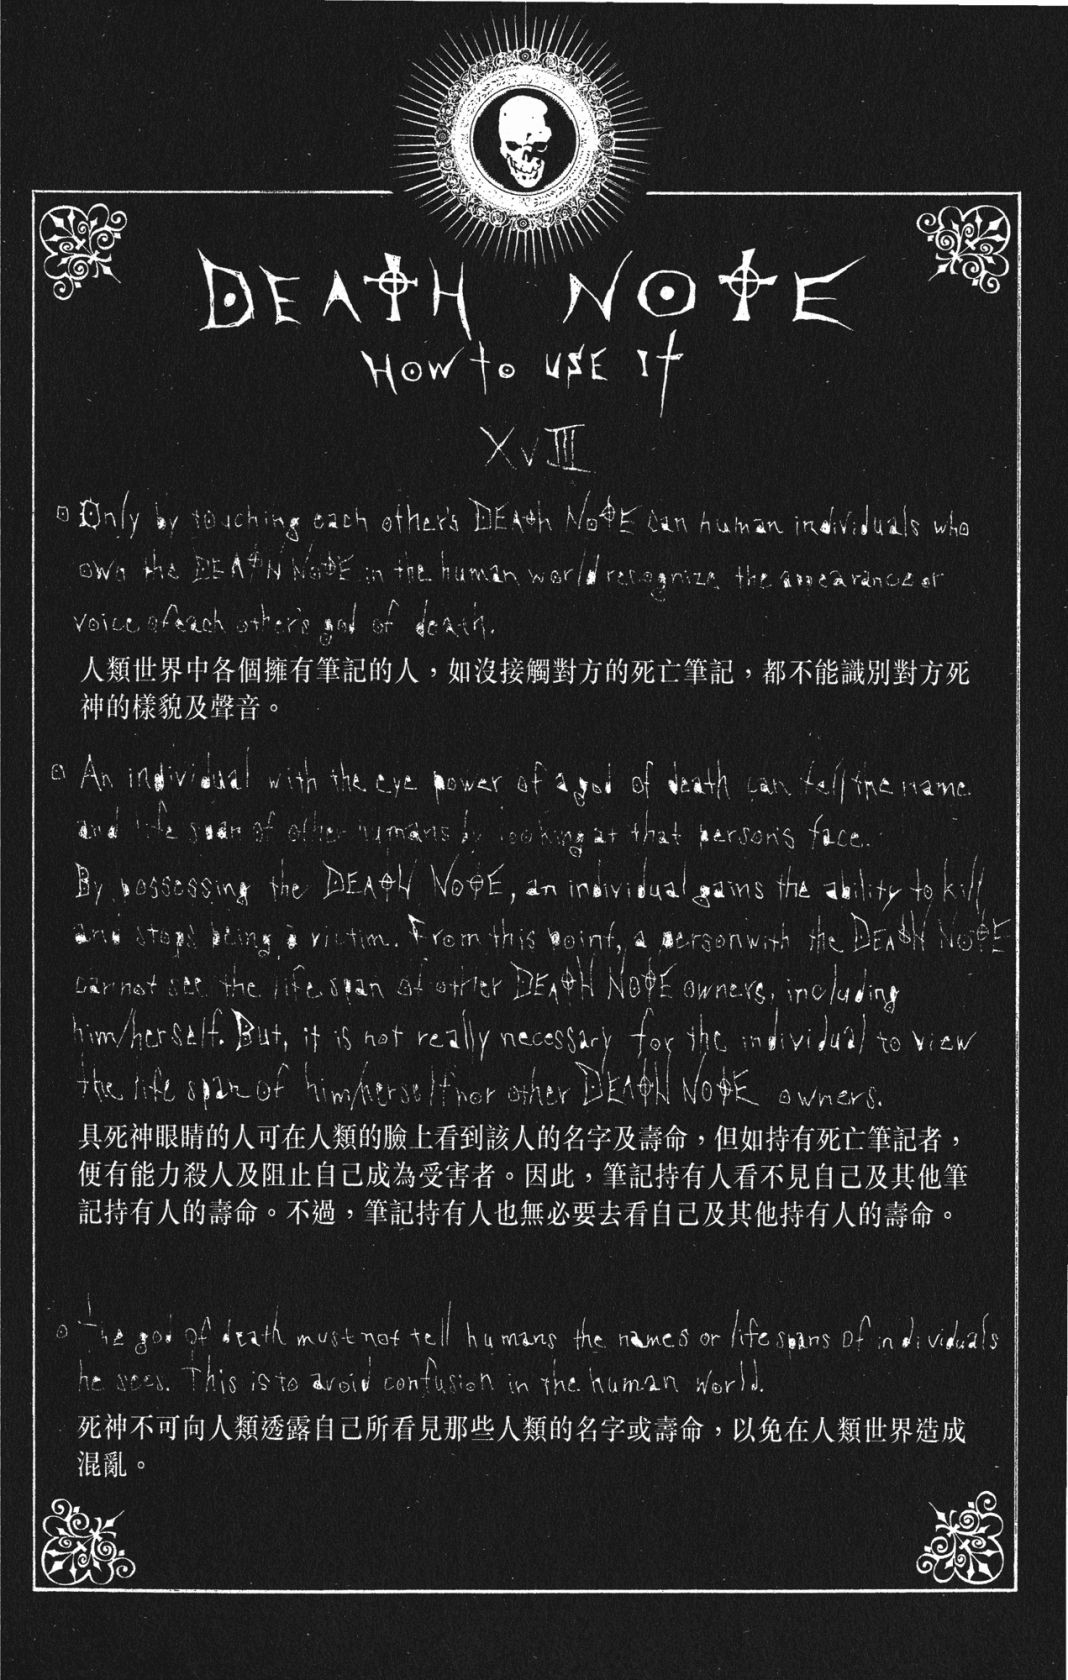 DEATH NOTE
HOW to USE It
XVIII
Only by touching each other's DEATH NOTE can human individuals who
own the DEATH NOTE in the human world recognize the appearance or
voice of each other's god of death.
人類世界中各個擁有筆記的人，如沒接觸對方的死亡筆記，都不能識別對方死
神的樣貌及聲音。
An individual with the eye power of a god of death can tell the name
and life span of other humans by looking at that person's face.
By possessing the DEATH NOTE, an individual gains the ability to kill
and stops being a victim. From this point, a person with the DEATH NOTE
cannot see the life span of other DEATH NOTE owners, including
him/herself. But, it is not really necessary for the individual to view
the life span of him/herself nor other DEATH NOTE owners.
具死神眼睛的人可在人類的臉上看到該人的名字及壽命，但如持有死亡筆記者，
便有能力殺人及阻止自己成為受害者。因此，筆記持有人看不見自己及其他筆
記持有人的壽命。不過，筆記持有人也無必要去看自己及其他持有人的壽命。
The god of death must not tell humans the names or life spans of individuals
he sees. This is to avoid confusion in the human world.
死神不可向人類透露自己所看見那些人類的名字或壽命，以免在人類世界造成
混亂。